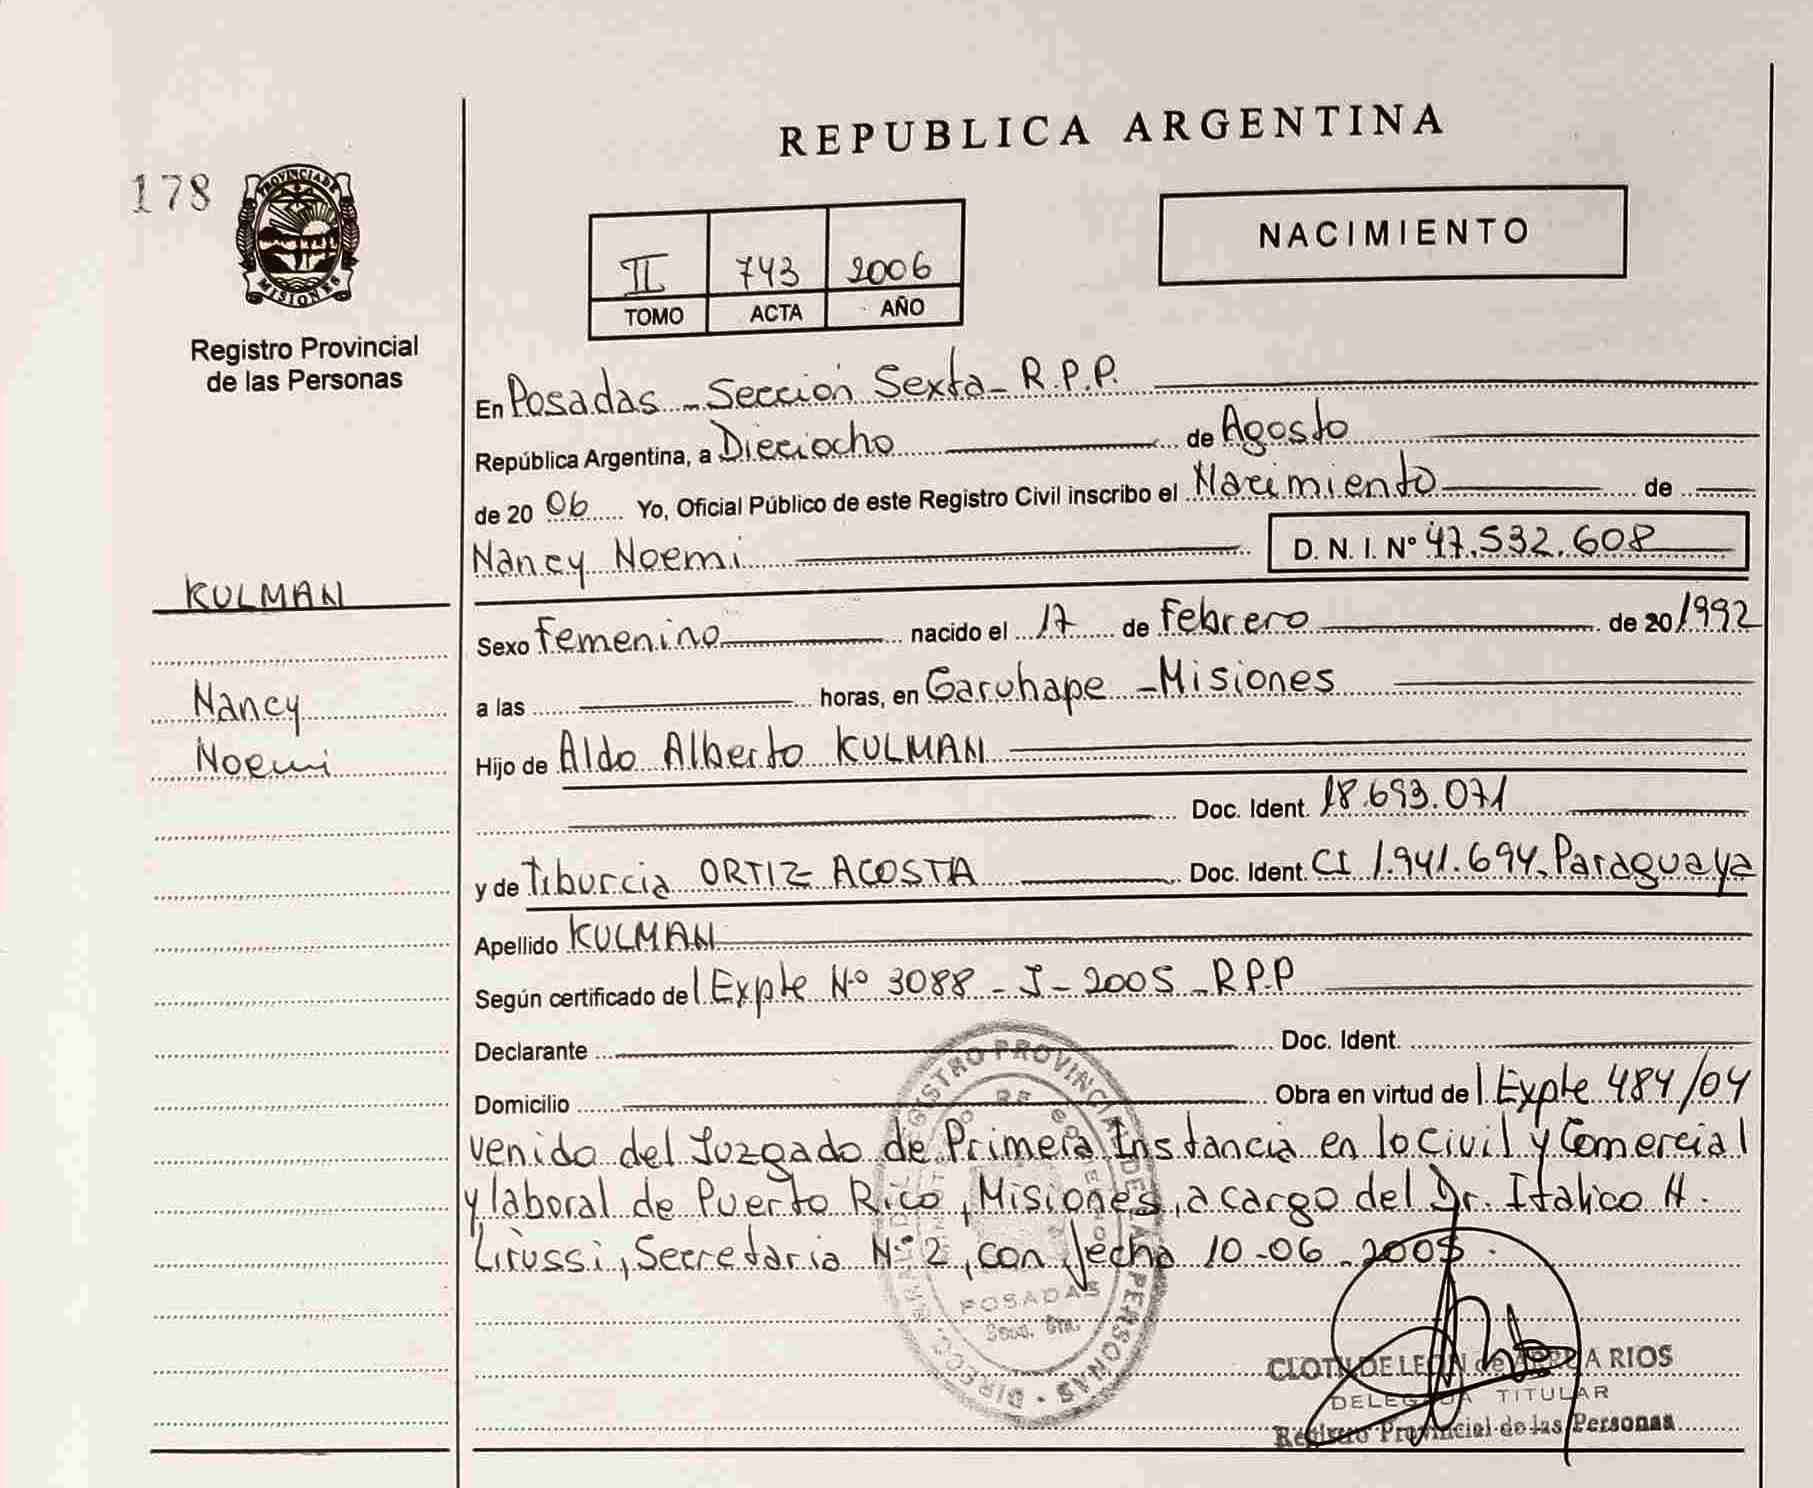 REPUBLICA ARGENTINA
178
PROVINCIA DE
MISIONES
NACIMIENTO
II 743 2006
TOMO ACTA AÑO
Registro Provincial
de las Personas
En Posadas - Sección Sexta - R.P.P.
República Argentina, a Dieciocho de Agosto
de 20 06 Yo, Oficial Público de este Registro Civil inscribo el Nacimiento de
Nancy Noemi D. N. I. Nº 47.532.608
KULMAN
Sexo Femenino nacido el 17 de Febrero de 20/1992
Nancy
a las horas, en Garuhape - Misiones
Noemi
Hijo de Aldo Alberto KULMAN
Doc. Ident. 18.693.071
y de Tiburcia ORTIZ ACOSTA Doc. Ident. CI 1.941.694. Paraguaya
Apellido KULMAN
Según certificado del Expte Nº 3088 - J - 2005 - R.P.P
Declarante Doc. Ident.
Domicilio Obra en virtud del Expte 484/04
venido del Juzgado de Primera Instancia en lo Civil y Comercial
y laboral de Puerto Rico, Misiones, a cargo del Dr. Italico H.
Lirussi, Secretaria Nº 2, con fecha 10-06-2005.
REGISTRO PROVINCIAL DE LAS PERSONAS
POSADAS
CLOTILDE LEON de A RIOS
DELEGADA TITULAR
Registro Provincial de las Personas